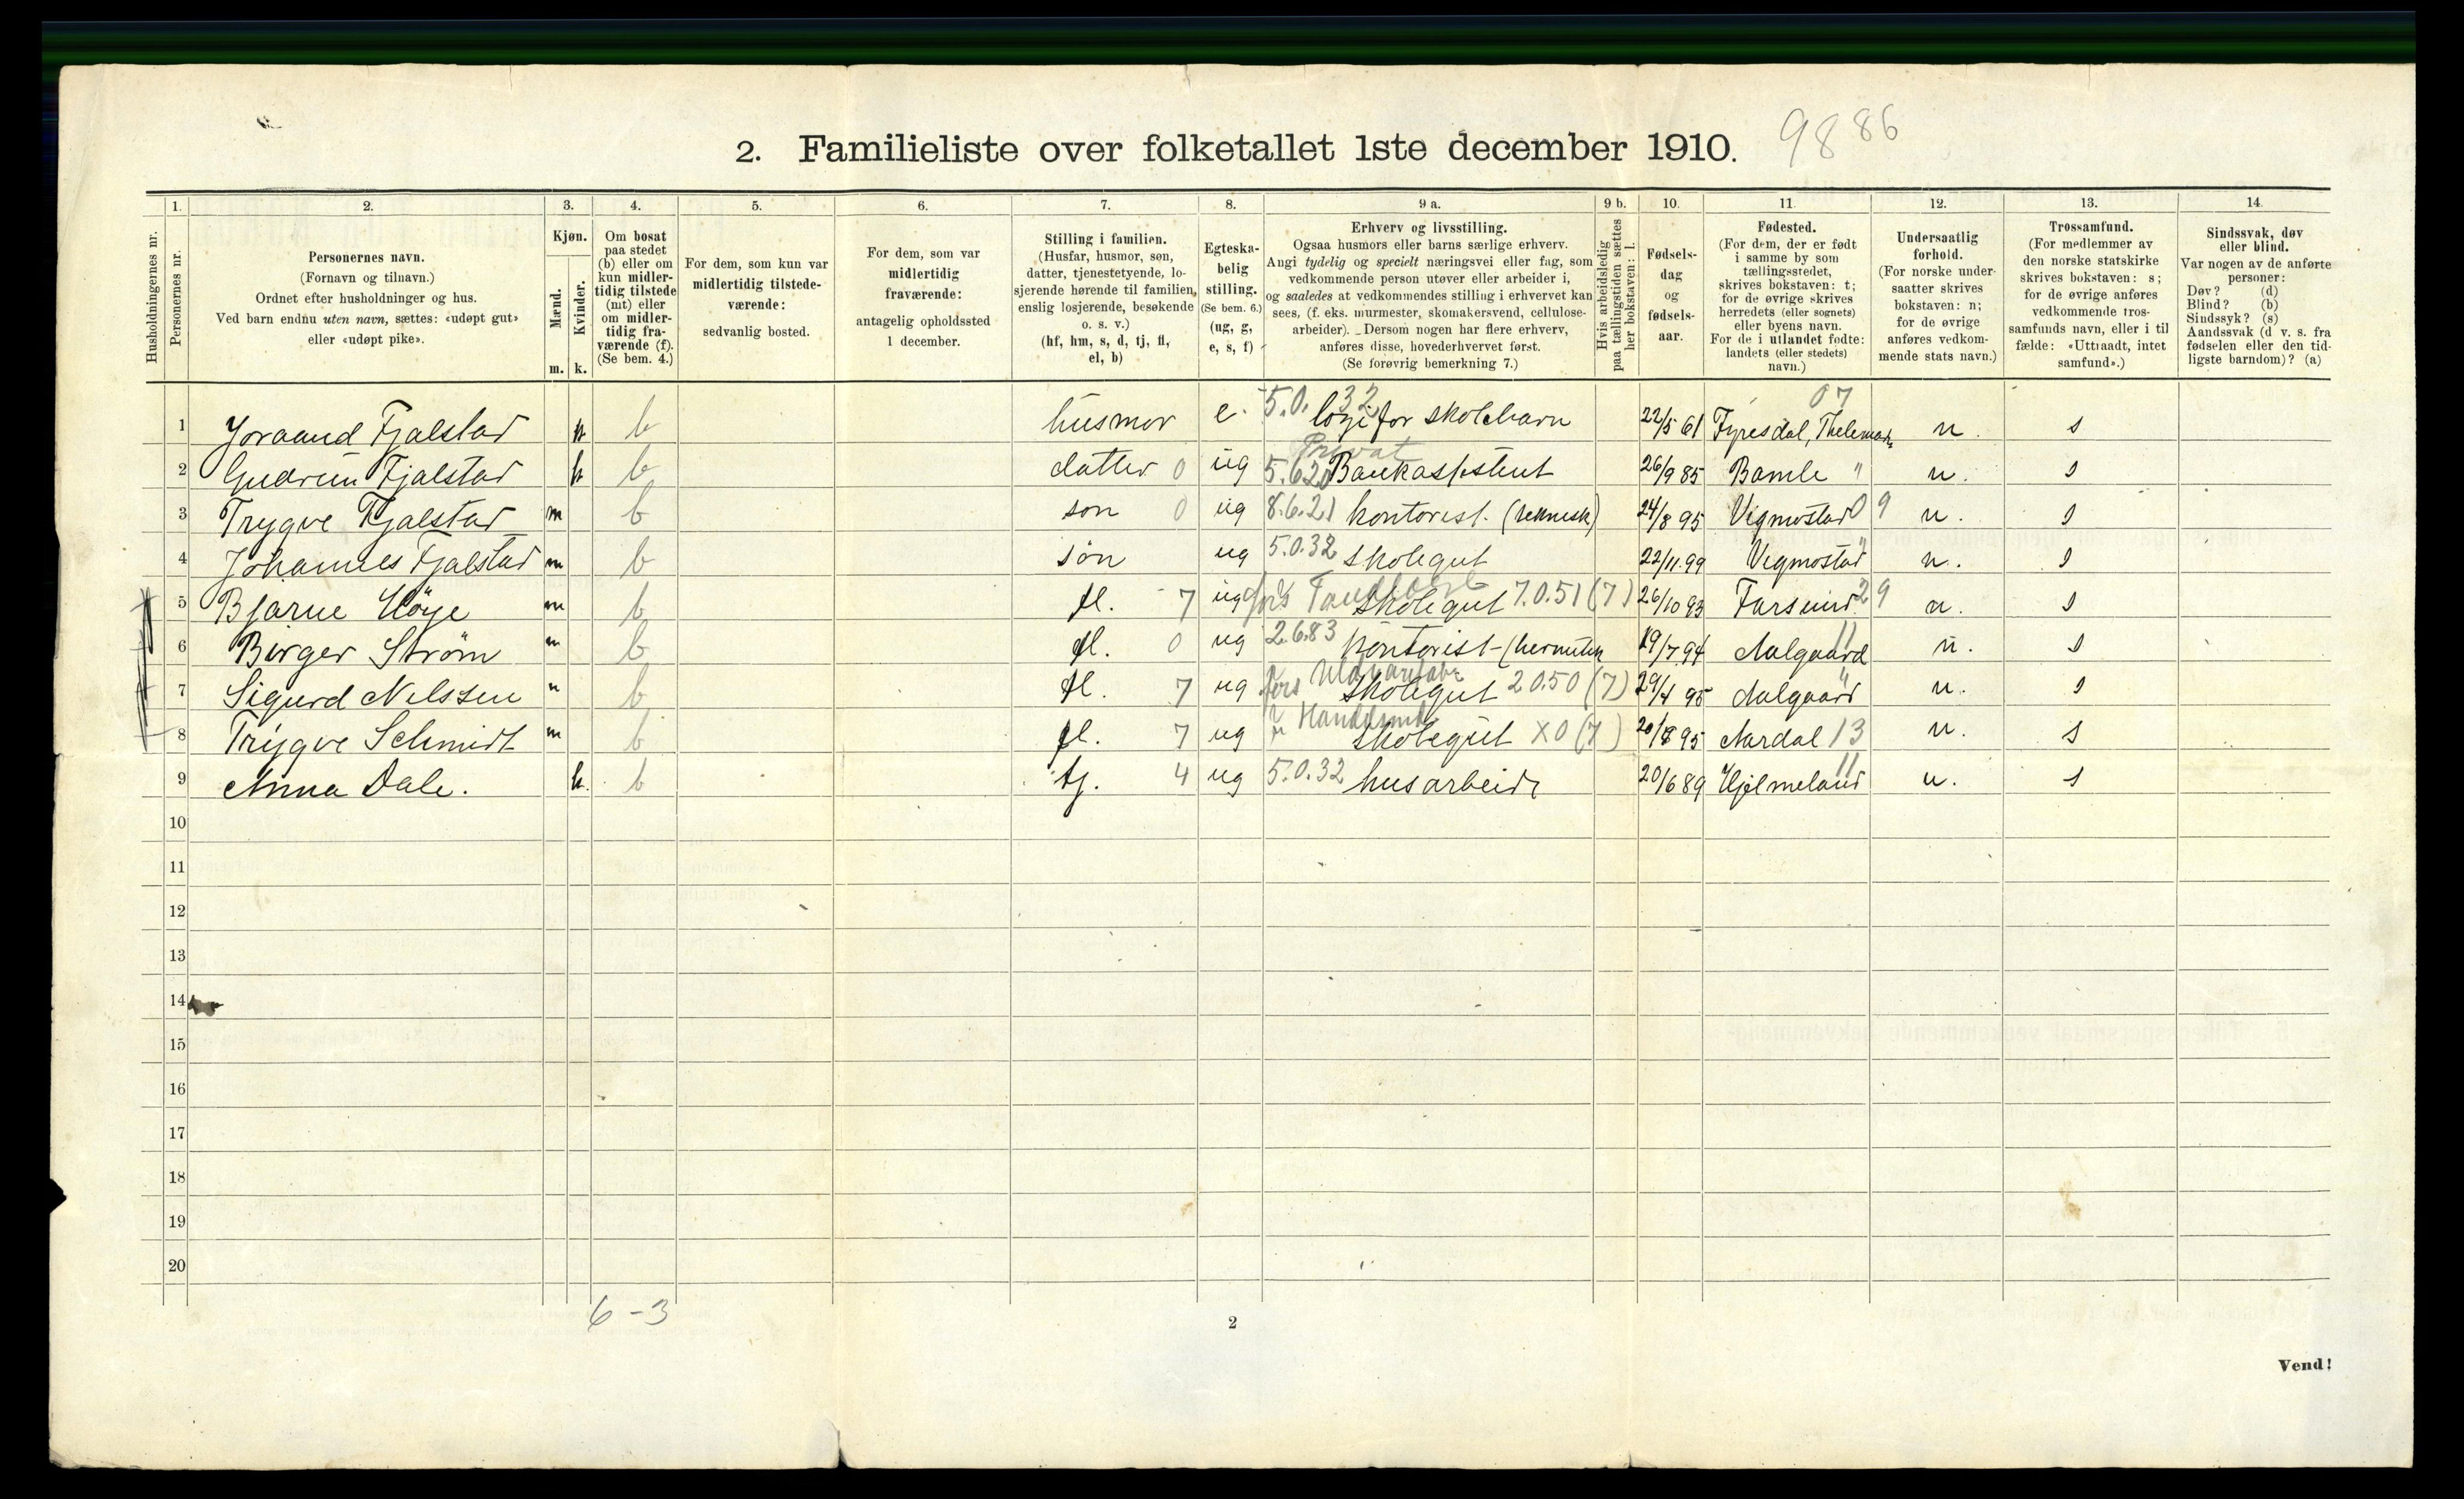 9886
2. Familieliste over folketallet 1ste december 1910.
1. 2. 3. 4. 5. 6. 7. 8. 9 a. 9 b. 10. 11. 12. 13. 14.
Husholdningernes nr.
Personernes nr.
Personernes navn.
(Fornavn og tilnavn.)
Ordnet efter husholdninger og hus.
Ved barn endnu uten navn, sættes: «udøpt gut»
eller «udøpt pike».
Kjøn.
Mænd.
Kvinder.
m. k.
Om bosat
paa stedet
(b) eller om
kun midler-
tidig tilstede
(mt) eller
om midler-
tidig fra-
værende (f).
(Se bem. 4.)
For dem, som kun var
midlertidig tilstede-
værende:
sedvanlig bosted.
For dem, som var
midlertidig
fraværende:
antagelig opholdssted
1 december.
Stilling i familien.
(Husfar, husmor, søn,
datter, tjenestetyende, lo-
sjerende hørende til familien,
enslig losjerende, besøkende
o. s. v.)
(hf, hm, s, d, tj, fl,
el, b)
Egteska-
belig
stilling.
(Se bem. 6.)
(ug, g,
e, s, f)
Erhverv og livsstilling.
Ogsaa husmors eller barns særlige erhverv.
Angi tydelig og specielt næringsvei eller fag, som
vedkommende person utøver eller arbeider i,
og saaledes at vedkommendes stilling i erhvervet kan
sees, (f. eks. murmester, skomakersvend, cellulose-
arbeider). Dersom nogen har flere erhverv,
anføres disse, hovederhvervet først.
(Se forøvrig bemerkning 7.)
Hvis arbeidsledig
paa tællingstiden sættes
her bokstaven: l.
Fødsels-
dag
og
fødsels-
aar.
Fødested.
(For dem, der er født
i samme by som
tællingsstedet,
skrives bokstaven: t;
for de øvrige skrives
herredets (eller sognets)
eller byens navn.
For de i utlandet fødte:
landets (eller stedets)
navn.)
Undersaatlig
forhold.
(For norske under-
saatter skrives
bokstaven: n;
for de øvrige
anføres vedkom-
mende stats navn.)
Trossamfund.
(For medlemmer av
den norske statskirke
skrives bokstaven: s;
for de øvrige anføres
vedkommende tros-
samfunds navn, eller i til
fælde: «Uttraadt, intet
samfund».)
Sindssvak, døv
eller blind.
Var nogen av de anførte
personer:
Døv? (d)
Blind? (b)
Sindssyk? (s)
Aandssvak (d v. s. fra
fødselen eller den tid-
ligste barndom)? (a)
1 Joraand Fjalstad k b husmor e. 5.0.32 logi for skolebarn 22/5 61 Fyresdal, Thelemark 07 n. s
2 Gudrun Fjalstad k b datter 0 ug 5.620 Privat Bankassistent 26/9 85 Bamle " n. s
3 Trygve Fjalstad m b son 0 ug 8.6.21 kontorist. (teknisk) 24/8 95 Vigmostad 09 n. s
4 Johannes Fjalstad m b søn ug 5.0.32 skolegut 22/11.99 Vegmostad " n. s
5 Bjarne Høye m b fl. 7 ug skolegut 7.0.51 (7) 26/10 93 Farsund 29 n. s
6 Birger Strøm m b fl. 0 ug 2.6.83 kontorist-(hermetik 19/7.94 Aalgaard 11 n. s
7 Sigurd Nilssen m b fl. 7 ug fors Uldvarefabr skolegut 2050 (7) 29/4 95 Aalgaard " n. s
8 Trygve Schmidt m b fl. 7 ug skolegut X0 (7) 20/8 95 Aardal 13 n. s
9 Anna Dale. k. b tj. 4 ug 5.0.32 husarbeide 20/6 89 Hjelmeland 11 n. s
10
11
12
13
14
15
16
17
18
19
20
6-3
2
Vend!